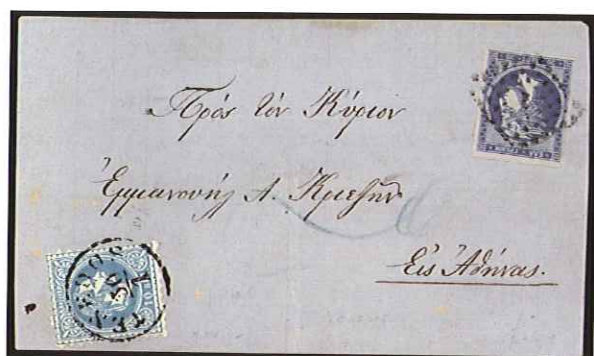 Πρός τόν Κύριον
Ἐμμανουήλ Α. Κριεζῆν
Εἰς Ἀθήνας.
TENEDOS